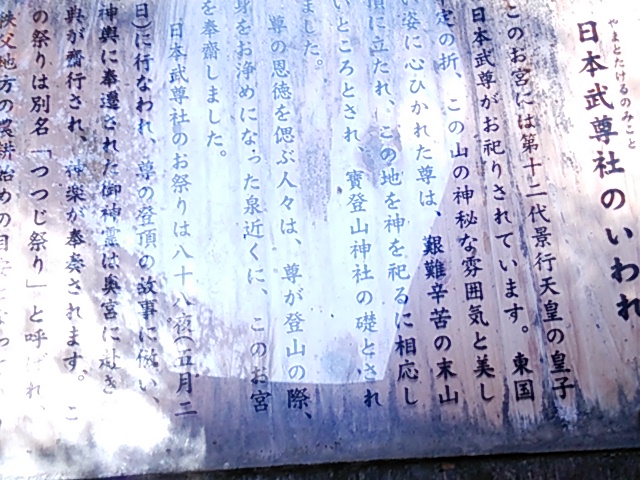 やまとたけるのみこと
日本武尊社のいわれ
このお宮には第十二代景行天皇の皇子
日本武尊がお祀りされています。東国
定の折、この山の神秘な雰囲気と美し
い姿に心ひかれた尊は、艱難辛苦の末山
頂に立たれ、この地を神を祀るに相応し
いところとされ、寳登山神社の礎とされ
ました。
尊の恩徳を偲ぶ人々は、尊が登山の際、
身をお浄めになった泉近くに、このお宮
を奉齋しました。
日本武尊社のお祭りは八十八夜(五月二
日)に行なわれ、尊の登頂の故事に倣い、
神輿に奉遷された御神霊は奥宮に
輿が齋行され、神楽が奉奏されます。こ
の祭りは別名「つつじ祭り」と呼ばれ、
秩父地方の農耕始めの目安と